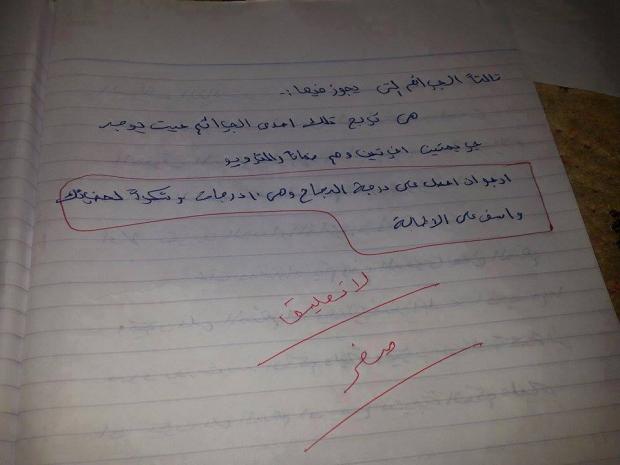 ثالثاً الجرائم التي يجوز فيها :-
هي تربع تلك احدى الجرائم حيث يوجد
جريمتين اخرتين وهم
ارجوان احصل على درجة النجاح وهي ١٠ درجات وشكراً لحضرتك
واسف على الاطالة
لا تعليق
صفر